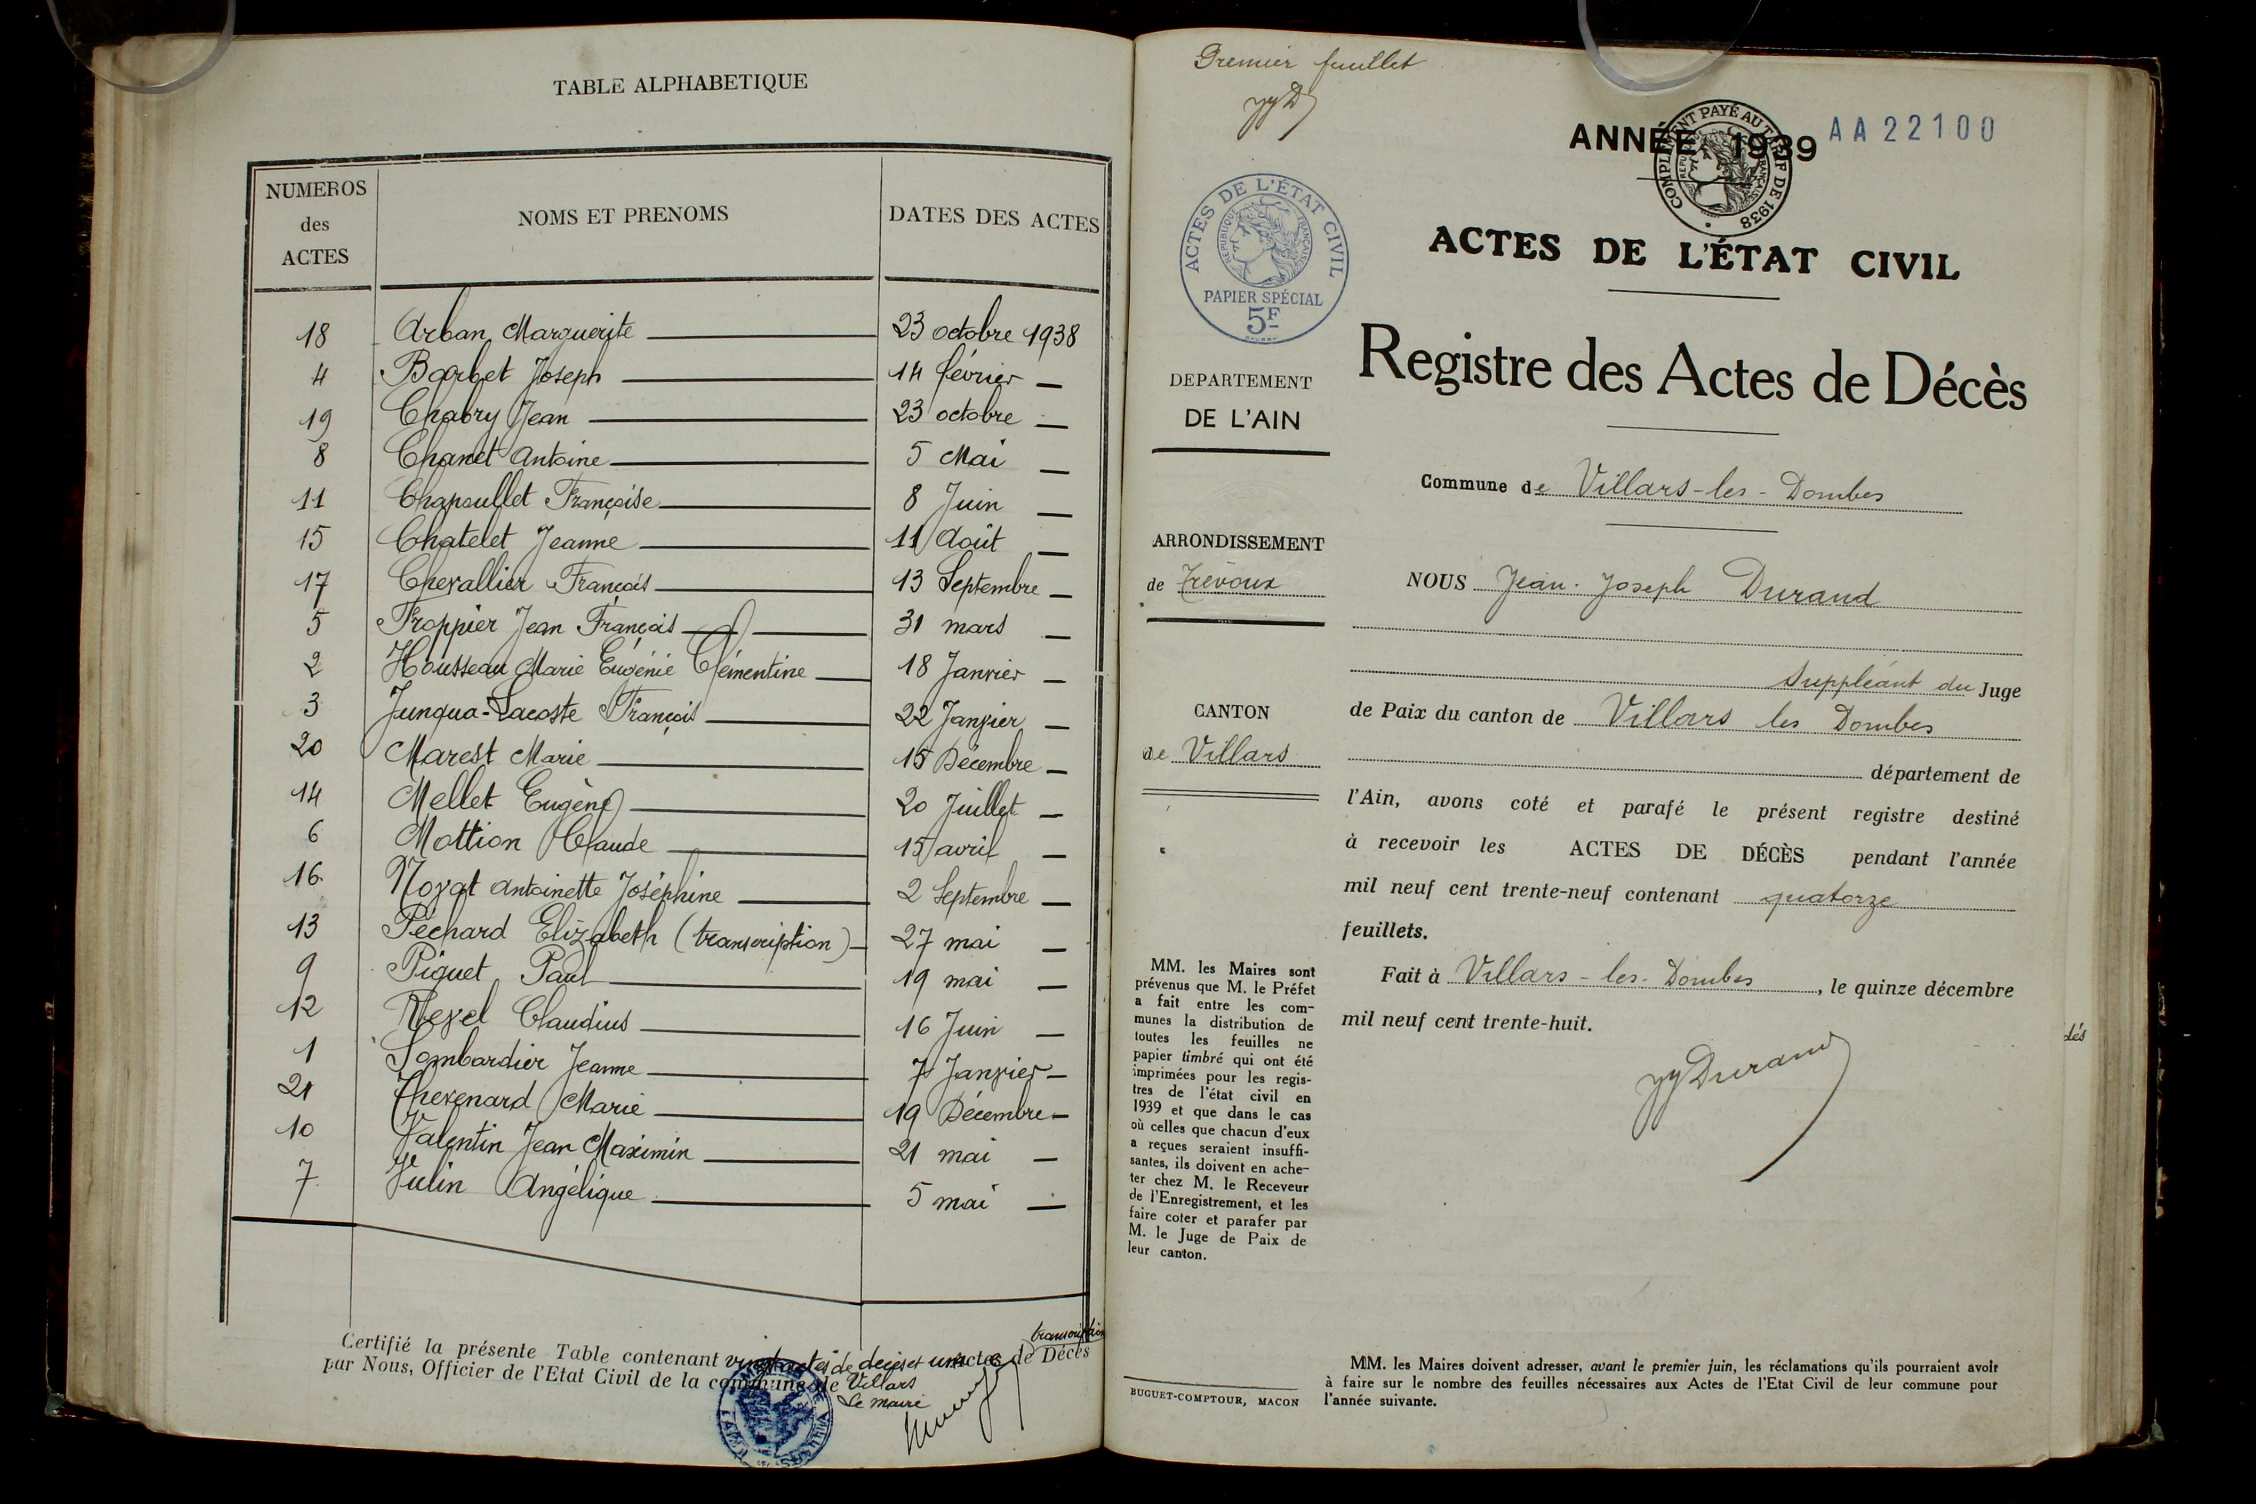 TABLE ALPHABETIQUE
NUMEROS des ACTES
NOMS ET PRENOMS
DATES DES ACTES
18 Arban Marguerite 23 octobre 1938
4 Barbet Joseph 14 février —
19 Chabry Jean 23 octobre —
8 Chanet Antoine 5 Mai —
11 Chapoullet Françoise 8 Juin —
15 Chatelet Jeanne 11 Août —
17 Chevallier François 13 Septembre —
5 Froppier Jean François 31 mars —
2 Housseau Marie Eugénie Clémentine 18 Janvier —
3 Junqua-Lacoste François 22 Janvier —
20 Marest Marie 15 Décembre —
14 Mellet Eugène 20 Juillet —
6 Mottion Claude 15 avril —
16 Noyat Antoinette Joséphine 2 Septembre —
13 Péchard Elizabeth (transcription) 27 mai —
9 Piguet Paul 19 mai —
12 Revel Claudius 16 Juin —
1 Sombardier Jeanne 7 Janvier —
21 Thevenard Marie 19 Décembre —
10 Valentin Jean Maximin 21 mai —
7 Vulin Angélique 5 mai —
transcription
Certifié la présente Table contenant vingt actes de décès et un actes de Décès
par Nous, Officier de l'Etat Civil de la commune de Villars
Le maire
Premier feuillet
JJD
ANNÉE 1939 AA22100
COMPLÉMENT PAYÉ AU TARIF DE 1938
RÉPUBLIQUE FRANÇAISE
ACTES DE L'ÉTAT CIVIL
RÉPUBLIQUE FRANÇAISE
PAPIER SPÉCIAL
5F
ACTES DE L'ÉTAT CIVIL
Registre des Actes de Décès
DEPARTEMENT
DE L'AIN
Commune de Villars-les-Dombes
ARRONDISSEMENT
de Trévoux
NOUS Jean-Joseph Durand
suppléant du Juge
CANTON
de Villars
de Paix du canton de Villars les Dombes
département de
l'Ain, avons coté et parafé le présent registre destiné
à recevoir les ACTES DE DÉCÈS pendant l'année
mil neuf cent trente-neuf contenant quatorze
feuillets.
Fait à Villars-les-Dombes, le quinze décembre
mil neuf cent trente-huit.
JJDurand
dés
MM. les Maires sont
prévenus que M. le Préfet
a fait entre les com-
munes la distribution de
toutes les feuilles ne
papier timbré qui ont été
imprimées pour les regis-
tres de l'état civil en
1939 et que dans le cas
où celles que chacun d'eux
a reçues seraient insuffi-
santes, ils doivent en ache-
ter chez M. le Receveur
de l'Enregistrement, et les
faire coter et parafer par
M. le Juge de Paix de
leur canton.
BUGUET-COMPTOUR, MACON
MM. les Maires doivent adresser, avant le premier juin, les réclamations qu'ils pourraient avoir
à faire sur le nombre des feuilles nécessaires aux Actes de l'Etat Civil de leur commune pour
l'année suivante.